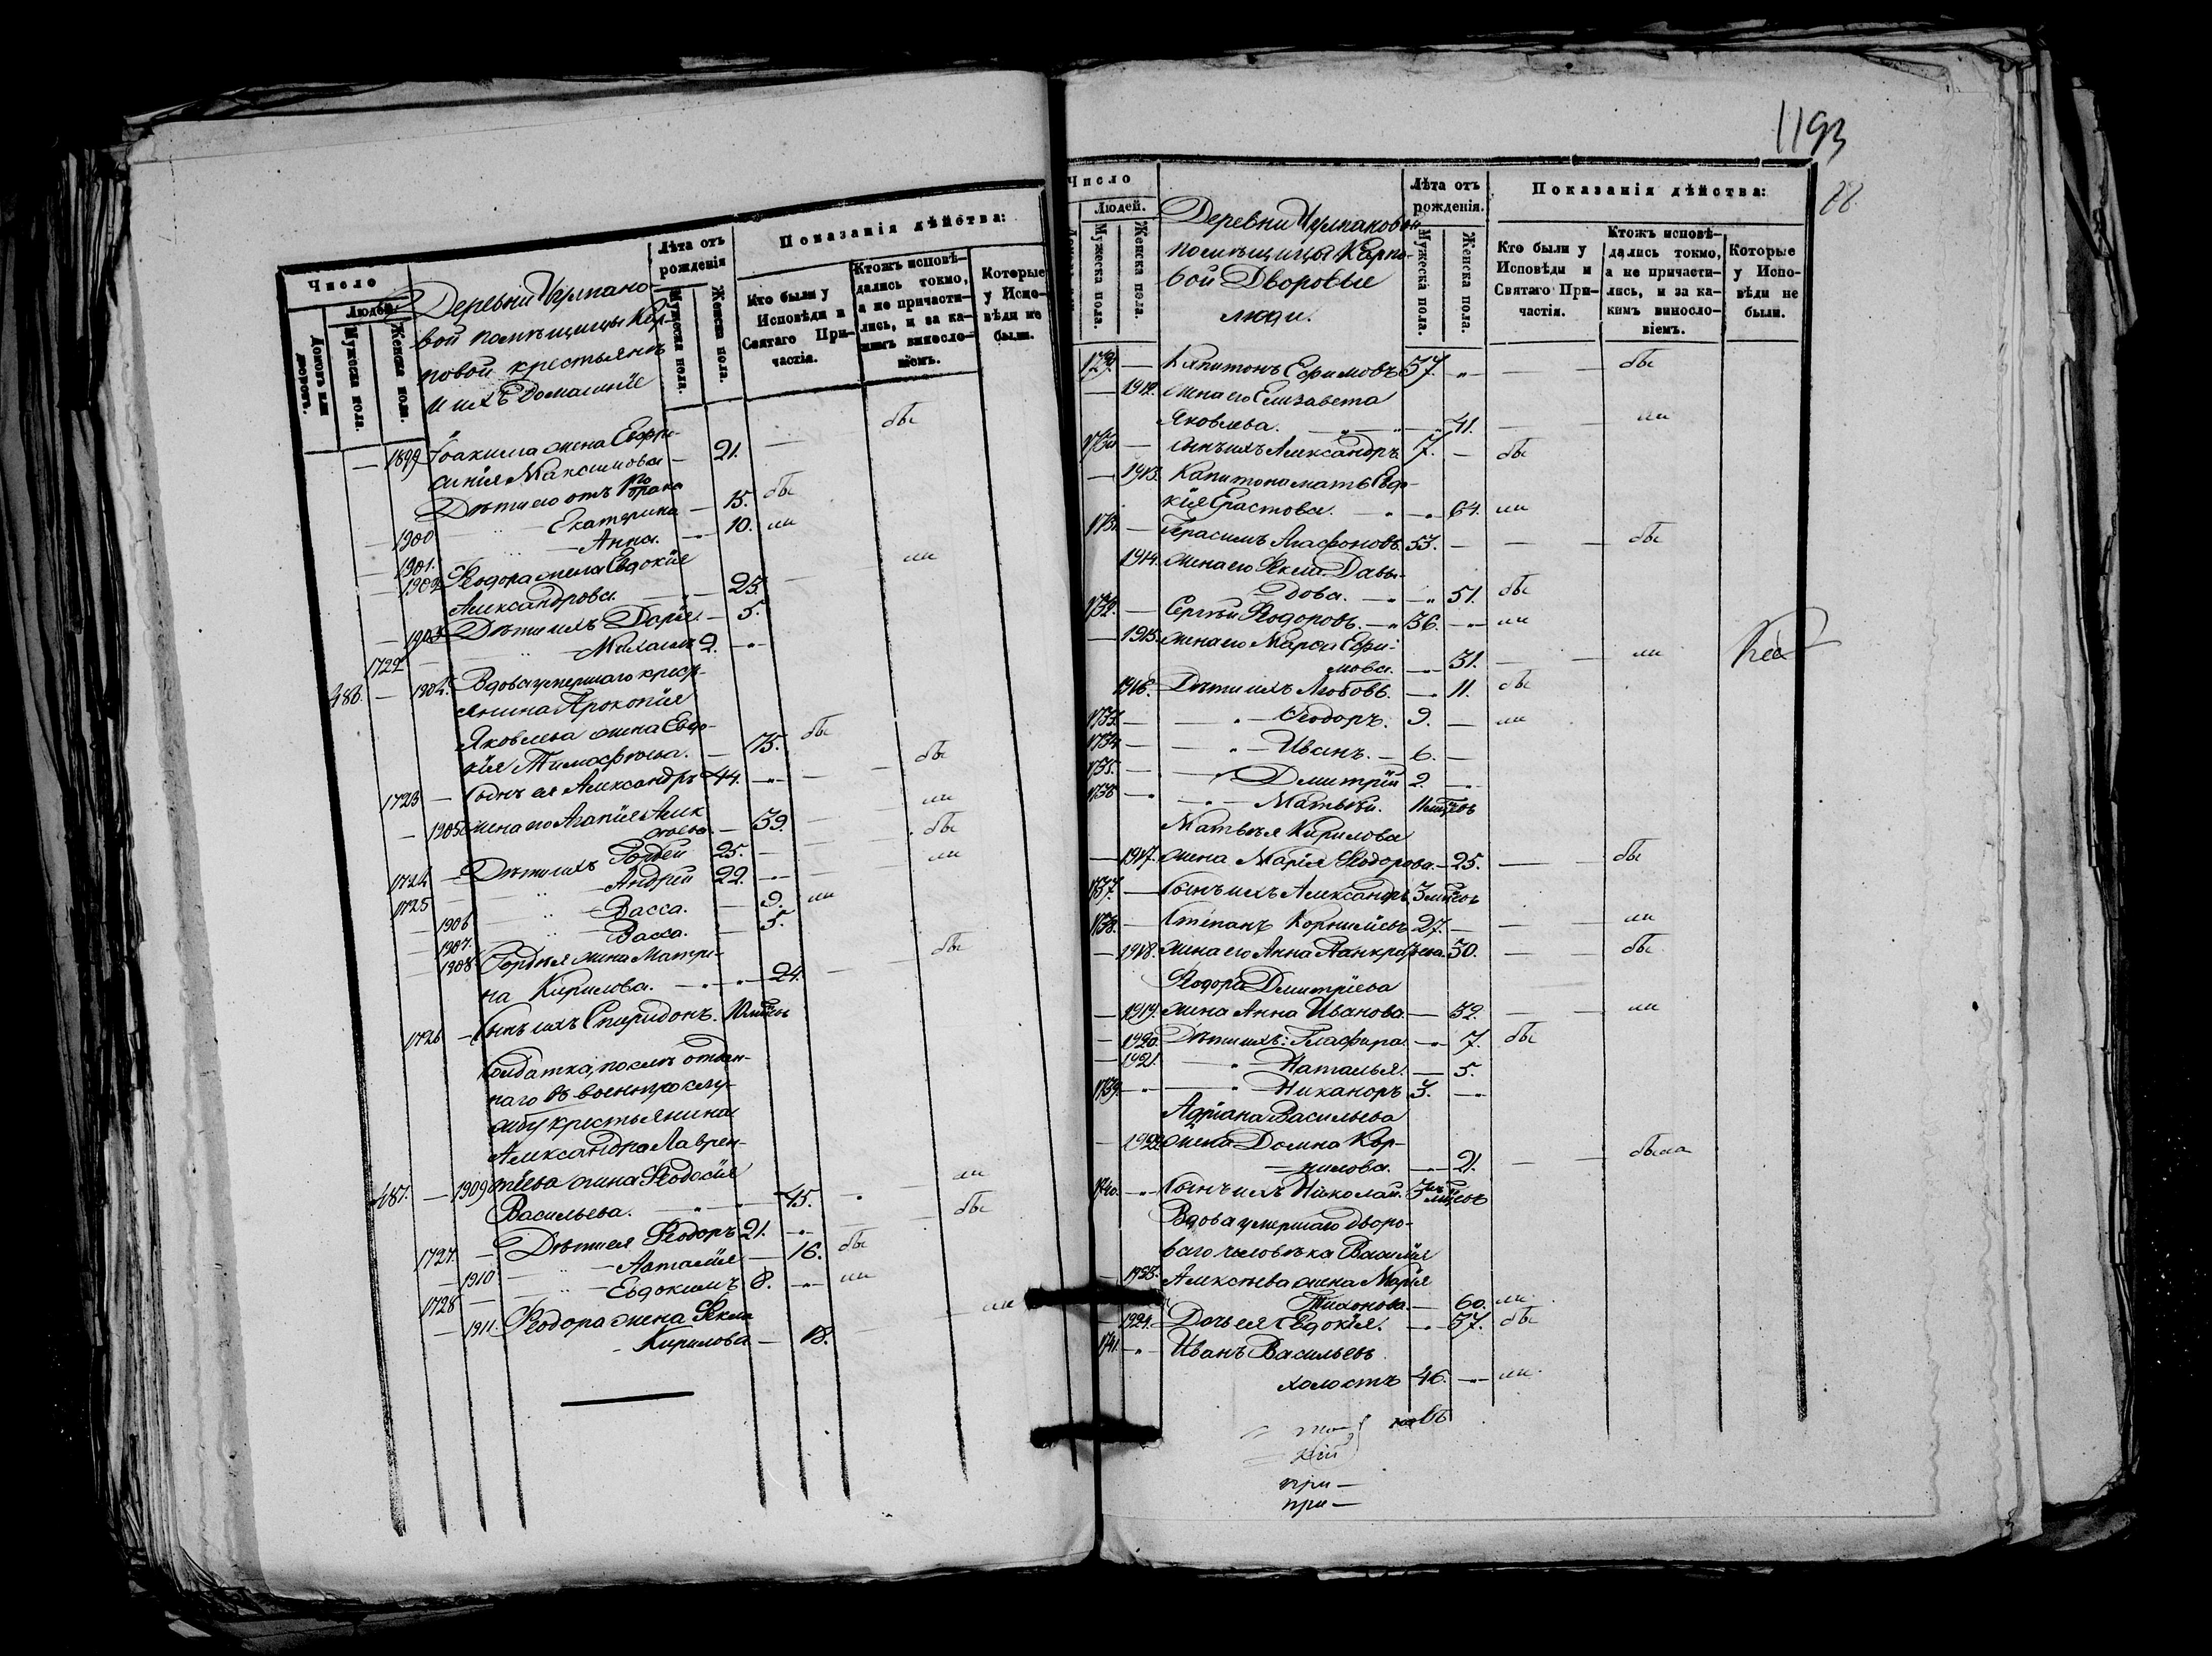 Число
Людей.
Домовъ или дворовъ.
Мужеска пола.
Женска пола.
Деревни
вой помѣщицы Кар-
повой крестьянъ
и ихъ домашніе
Лѣта отъ
рожденія
Мужеска пола.
Женска пола.
Показанія дѣйства:
Кто были у
Исповѣди и
Святаго При-
частія.
Ктожъ исповѣ-
дались токмо,
а не причасти-
лись, и за ка-
кимъ виносло-
віемъ.
Которые
у Испо-
вѣди не
были.
— 1899 Іоакима жена Евфро-
синія Максимова — 21. — бы
Дѣти его отъ 1го брака
— 1900 Екатерина — 15. бы
— 1901. — Анна. — 10. ли
— 1902 Ѳеодора жена Евдокія
Александрова. — 25. — ли
— 1903 Дѣти ихъ Дарія. — 5.
1722 — Михаилъ 2. —
486. — 1904. Вдова умершаго кресть-
янина Прокопія
Яковлева жена Евдо-
кія Тимофѣева. — 75. бы
1723 — Сынъ ея Александръ 44. — — бы
— 1905 жена его Агапія Алек
сѣева. — 39. — ли
1724 — Дѣти ихъ Гордѣй 25. — — бы
1725 — Андрей 22. — — ли
— 1906 — Васса. — 9. ли
— 1907. — Васса. — 5.
— 1908 Гордѣя жена Матре-
на Кирилова. — 24. — бы
1726 — Сынъ ихъ Спиридонъ. 10 мѣсяцовъ
Солдатка, послѣ отдан-
наго въ военную служ-
бу крестьянина
Александра Лаврен-
487. — 1909 тіева жена Ѳеодосія
Васильева. — 45. — ли
1727. — Дѣти ея Ѳеодоръ 21. — — бы
— 1910 — Наталія — 16. бы
1728 — Евдокимъ 8. — ли
— 1911. Ѳеодора жена Ѳекла
— Кирилова — 18. — ли
1193
88
Число
Людей.
Мужеска пола.
Женска пола.
Деревни
помѣщицы Карпо-
вой Дворовые
люди.
Лѣта отъ
рожденія.
Мужеска пола.
Женска пола.
Показанія дѣйства:
Кто были у
Исповѣди и
Святаго При-
частія.
Ктожъ исповѣ-
дались токмо,
а не причасти-
лись, и за ка-
кимъ виносло-
віемъ.
Которые
у Испо-
вѣди не
были.
1729. — Капитонъ Ефимовъ 57. — — бы
— 1912. жена его Елизавета
Яковлева. — 41. — ли
1730 — сынъ ихъ Александръ. 7. — бы
— 1913. Капитона мать Евдо-
кія Ерастова. — 64. ли
1731. — Герасимъ Агафоновъ. 53. — — бы
1914. жена его Ѳекла Давы-
дова. — 51. бы
1732. — Сергѣй Ѳеодоровъ. — 36. — ли
— 1915. жена его Марѳа Ефи-
мова. — 31. — ли
1916. Дѣти ихъ Любовь. — 11. бы
1733. — Ѳеодоръ. 9. — ли
1734 — Иванъ. — 6. —
1735. — Дмитрій 2. —
1736 — Матвѣй. 11 мѣсяцовъ
Матвѣя Кирилова
— 1917. жена Марія Ѳеодорова. — 25. — бы
1737. — Сынъ ихъ Александръ 3 мѣсяцовъ
1738. — Степанъ Корнилiевъ 27. — — ли
— 1918. жена его Анна Панкратьева. 30. — бы
Ѳеодора Дмитріева
— 1919. жена Анна Иванова. — 32. — ли
— 1920. Дѣти ихъ: Глафира. — 7. бы
— 1921. — Наталья. — 5.
1739. — Никаноръ 3. —
Адріана Васильева
— 1922. жена Домна Кор-
нилова. — 21. — была
1740. — Сынъ ихъ Николай. 3 мѣсяцовъ
Вдова умершаго дворо-
ваго человѣка Василія
1923. Алексѣева жена Марія
Тихонова. — 60. ли
1924. Дочь ея Евдокія. — 37. бы
1741. — Иванъ Васильевъ
холостъ 46. — ли
при —
при —